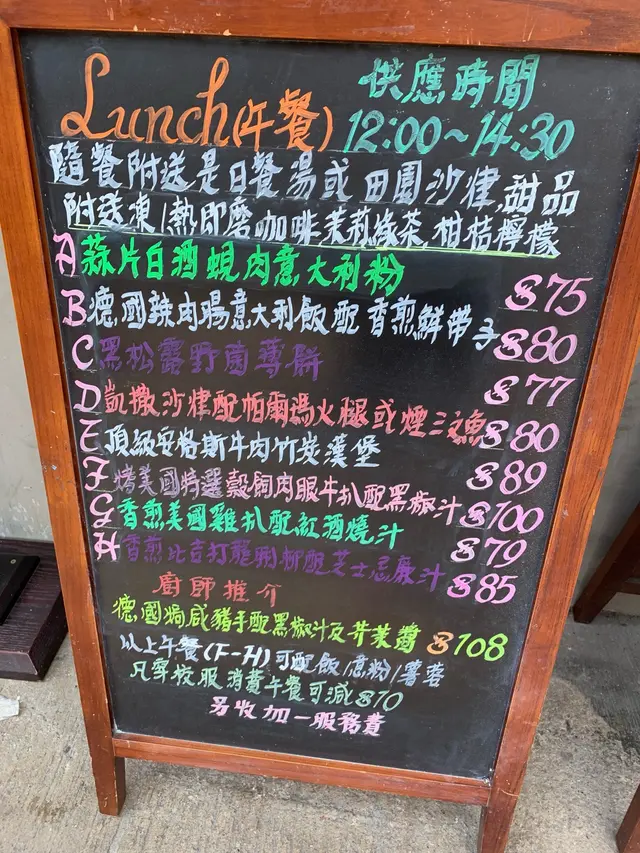 Lunch(午餐) 供應時間 12:00~14:30
隨餐附送是日餐湯或田園沙律,甜品
附送凍/熱即磨咖啡,茉莉綠茶,柑桔檸檬
A 蒜片白酒蜆肉意大利粉 $75
B 德國辣肉腸意大利飯配香煎鮮帶子 $80
C 黑松露野菌薄餅 $77
D 凱撒沙律配帕爾馮火腿或煙三文魚 $80
E 頂級安格斯牛肉竹炭漢堡 $89
F 烤美國特選穀飼肉眼牛扒配黑椒汁 $100
G 香煎美國雞扒配紅酒燒汁 $79
H 香煎比吉打龍脷柳配芝士忌廉汁 $85
廚師推介
德國焗咸豬手配黑椒汁及芥茉醬 $108
以上午餐(F-H)可配飯/意粉/薯蓉
凡穿校服消費午餐可減$10
另收加一服務費